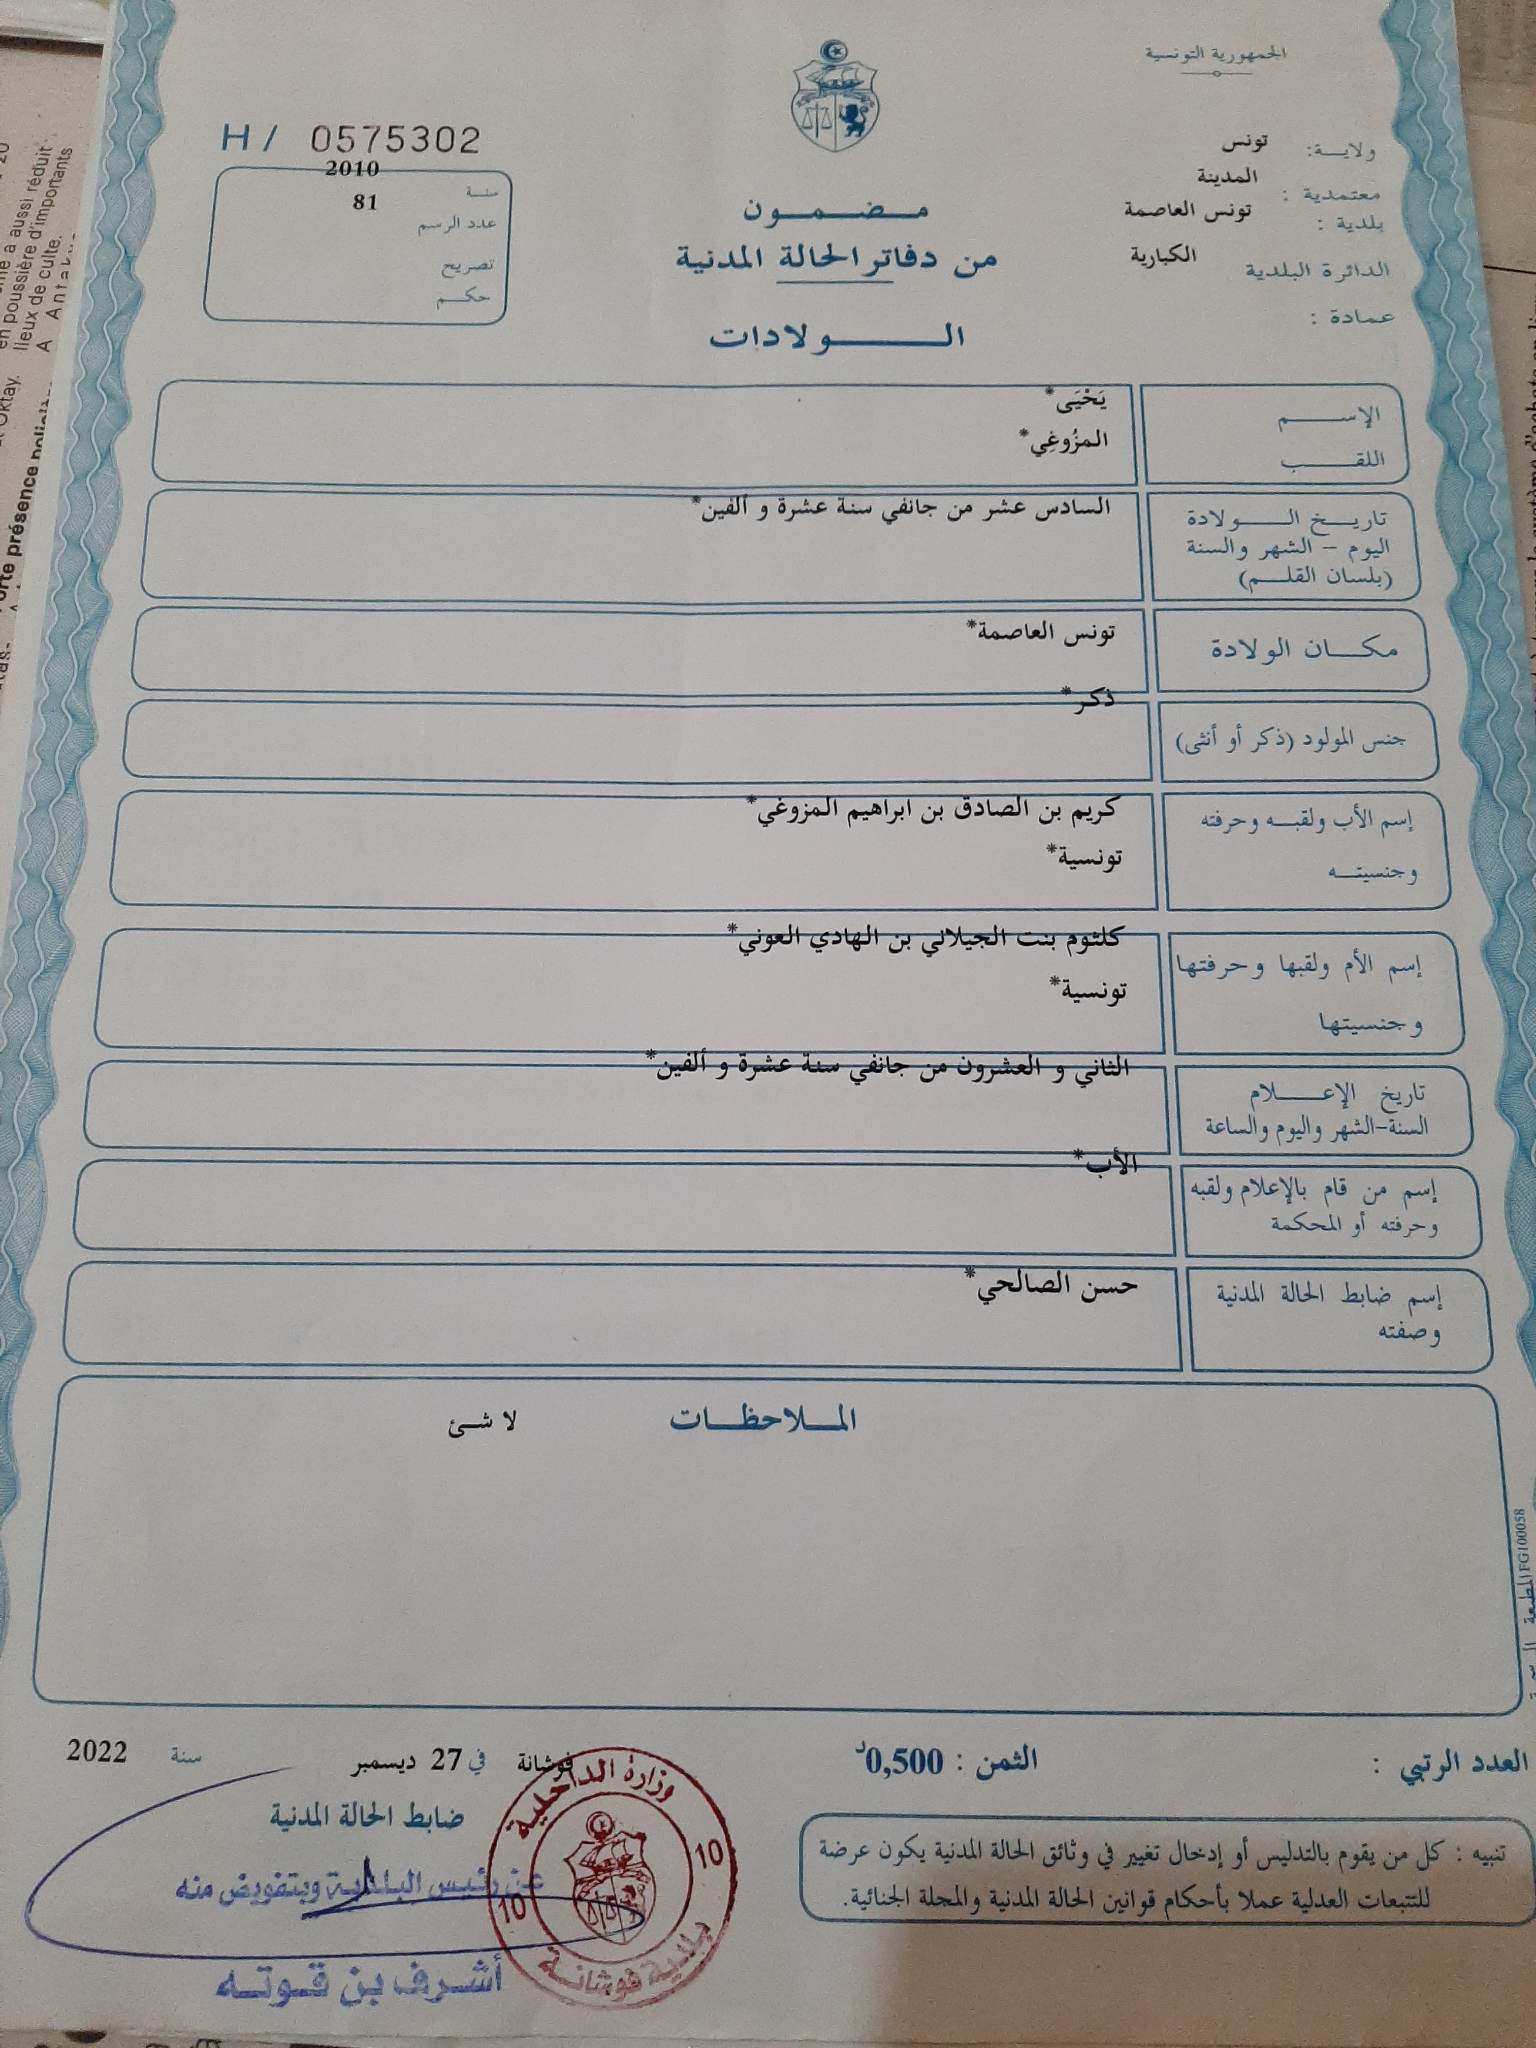 الجمهورية التونسية
H / 0575302
ولايـــة: تونس
معتمدية : المدينة
بلدية : تونس العاصمة
الدائرة البلدية الكبارية
عمادة :
سنـــة 2010
عدد الرسم 81
تصريح
حكـــم
مـــضـــمـــون
من دفاتر الحالة المدنية
الـــــولادات
الإســـــم يَحْيَى*
اللقـــــب المزُوغِي*
تاريـــخ الـــــولادة السادس عشر من جانفي سنة عشرة و ألفين*
اليوم – الشهر والسنة
(بلسان القلـــم)
مكـــان الولادة تونس العاصمة*
جنس المولود (ذكر أو أنثى) ذكر*
إسم الأب ولقبـــه وحرفته كريم بن الصادق بن ابراهيم المزوغي*
وجنسيتـــه تونسية*
إسم الأم ولقبها وحرفتها كلثوم بنت الجيلاني بن الهادي العوني*
وجنسيتها تونسية*
تاريخ الإعـــــلام الثاني و العشرون من جانفي سنة عشرة و ألفين*
السنة-الشهر واليوم والساعة
إسم من قام بالإعلام ولقبه الأب*
وحرفته أو المحكمة
إسم ضابط الحالة المدنية حسن الصالحي*
وصفته
المـــلاحظـــات لا شئ
FG100058
العدد الرتبي :
الثمن : 0,500د
فوشانة في 27 ديسمبر سنة 2022
ضابط الحالة المدنية
عن رئيس البلدية وبتفويض منه
أشرف بن قوتـــه
وزارة الداخلية
10 10
بلدية فوشانـــة
تنبيه : كل من يقوم بالتدليس أو إدخال تغيير في وثائق الحالة المدنية يكون عرضة
للتتبعات العدلية عملا بأحكام قوانين الحالة المدنية والمجلة الجنائية.